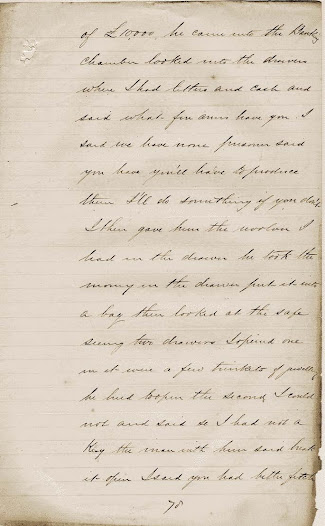 of £10,000, he came into the Banking
chamber looked into the drawers
where I had letters and cash and
said what fire arms have you I
said we have none prisoner said
you have you'll have to produce
them I'll do something if you don't
I then gave him the revolver I
had in the drawer he took the
money in the drawer put it into
a bag then looked at the safe
seeing two drawers I opened one
in it were a few trinkets of jewellery
he tried to open the second, I could
not and said so I had not a
Key the man with him said break
it open I said you had better fetch
78